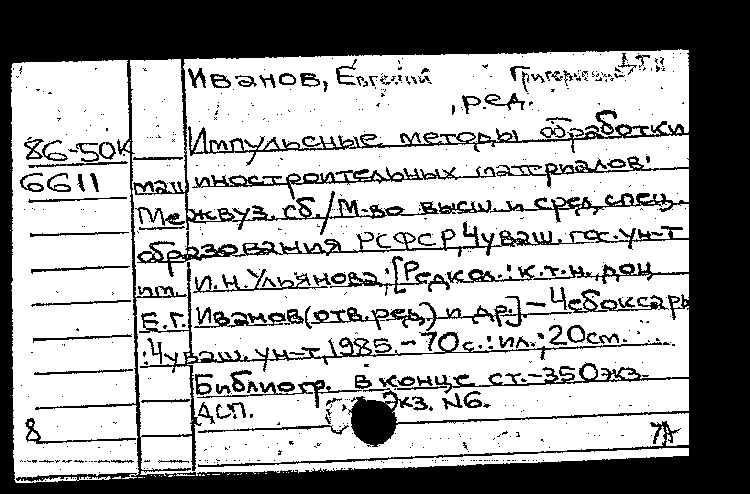 Иванов, Евгений Григорьевич,
,ред.
86-50К Импульсные методы обработки
6611 машиностроительных материалов:
Межвуз. сб./М-во высш. и сред. спец.
образования РСФСР, Чуваш. гос. ун-т
им. И.Н.Ульянова; [Редкол.: к.т.н., доц
Е.Г. Иванов (отв. ред.) и др.].-Чебоксары
:Чуваш. ун-т, 1985.-70с.: ил.; 20см.
Библиогр. в конце ст.-350экз.
ДСП. Экз. №6.
8